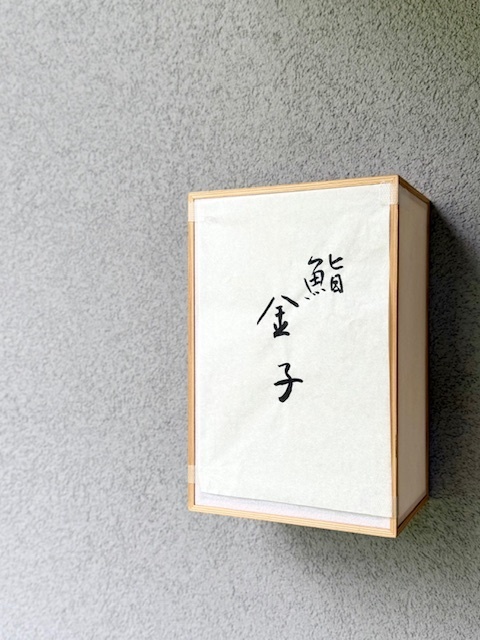 鮨
金子